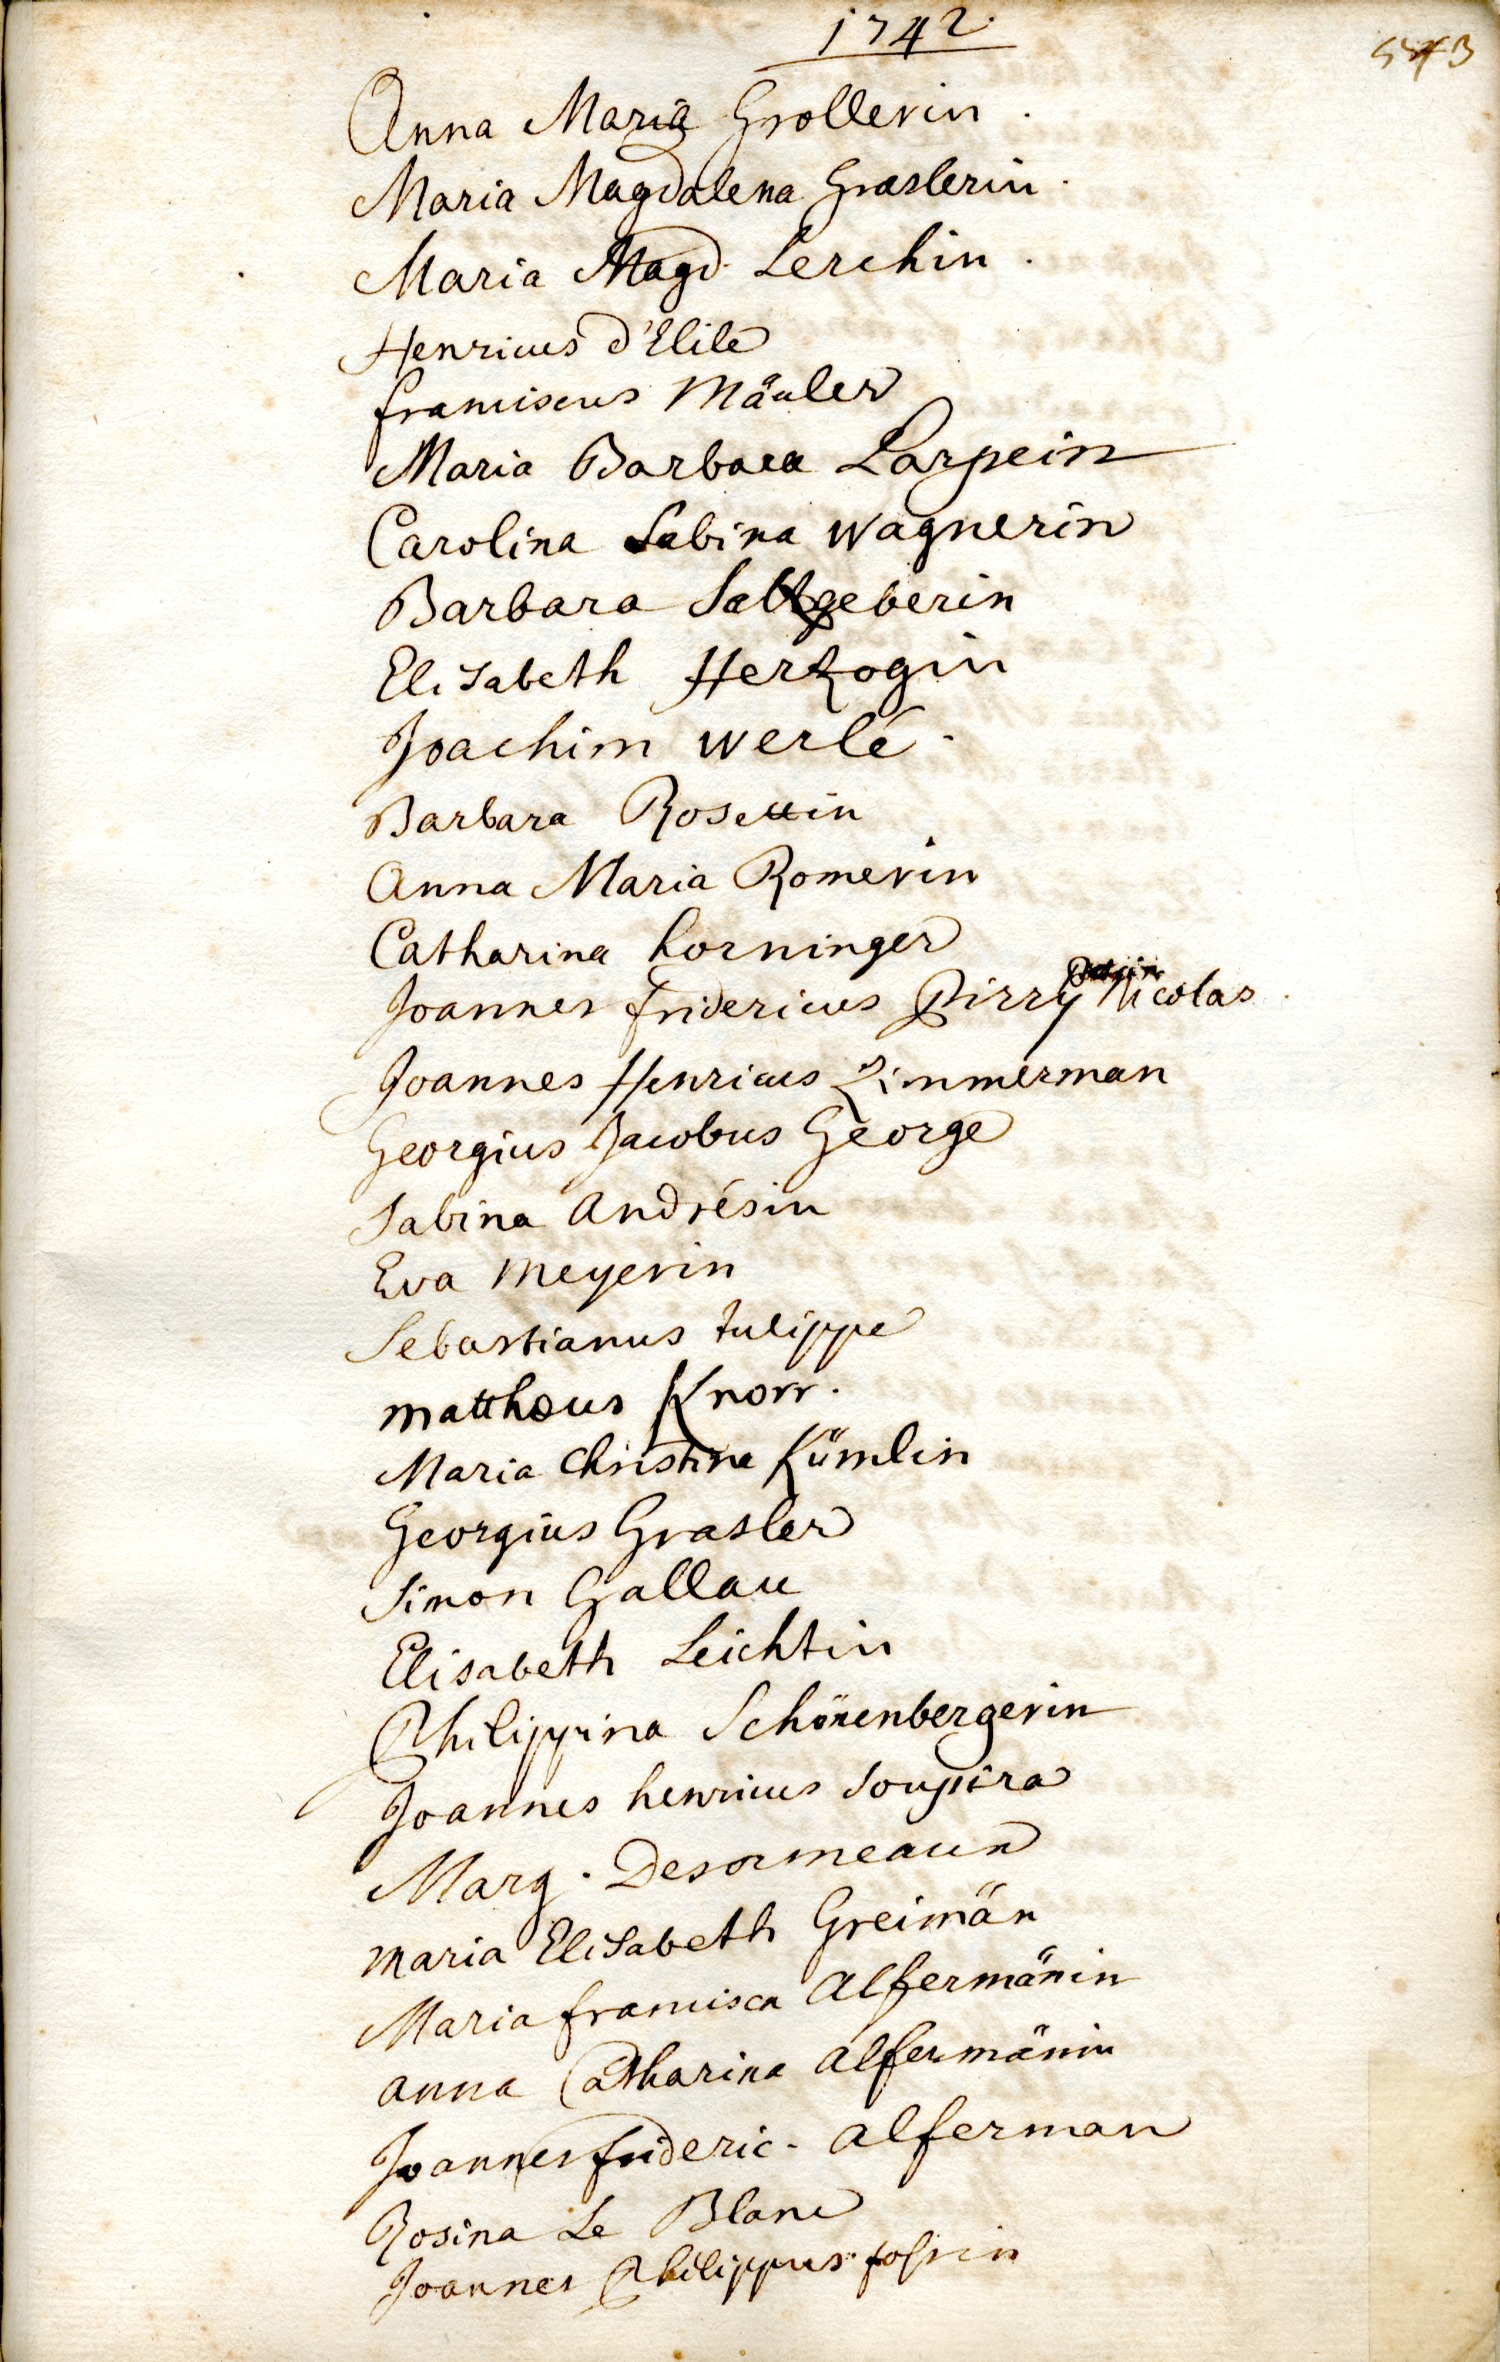 1742
Anna Maria Grollerin.
Maria Magdalena Graslerin.
Maria Magd. Lerchin.
Henricus d'Elile
franciscus Mäuler
Maria Barbara Larpein
Carolina Sabina Wagnerin
Barbara Saltzgeberin
Elisabeth Hertzogin
Joachim Werlé.
Barbara Rosettin
Anna Maria Romerin
Catharina horninger
Joannes fridericus Pirry Nicolas.
Joannes Henricus Zimmerman
Georgius Jacobus George
Sabina Andrésin
Eva Meyerin
Sebastianus tulippe
matthæus Knorr.
Maria Christina Kümlin
Georgius Grasler
Simon Gallau
Elisabeth Leichtin
Philippina Schönenbergerin
Joannes henricus Soupira
Marg. Desormeaux
Maria Elisabeth Greimän
Maria francisca Alfermänin
Anna Catharina Alfermänin
Joannes frideric. Alferman
Rosina Le Blanc
Joannes Philippus